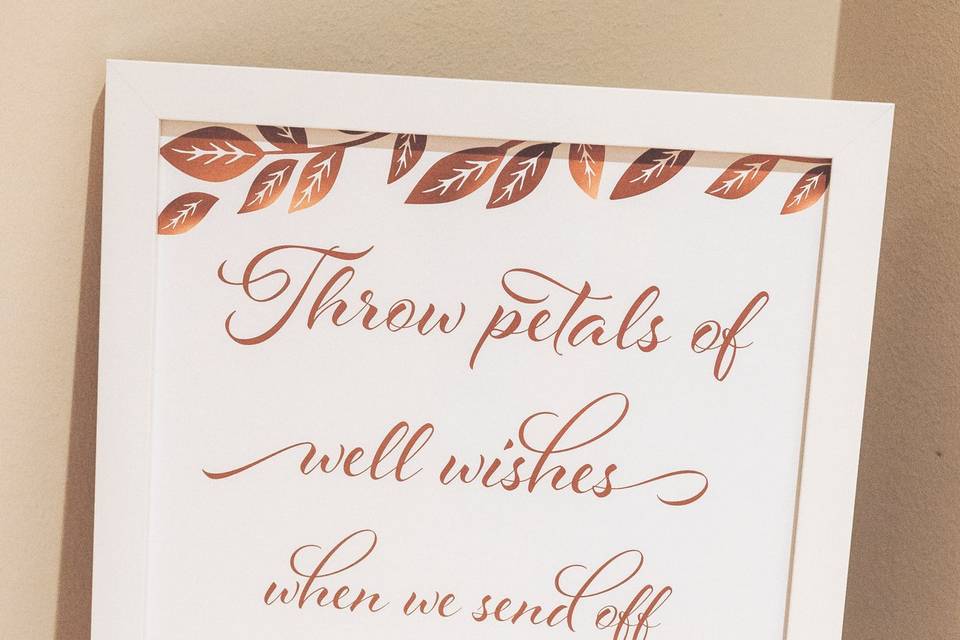 Throw petals of
well wishes
when we send off